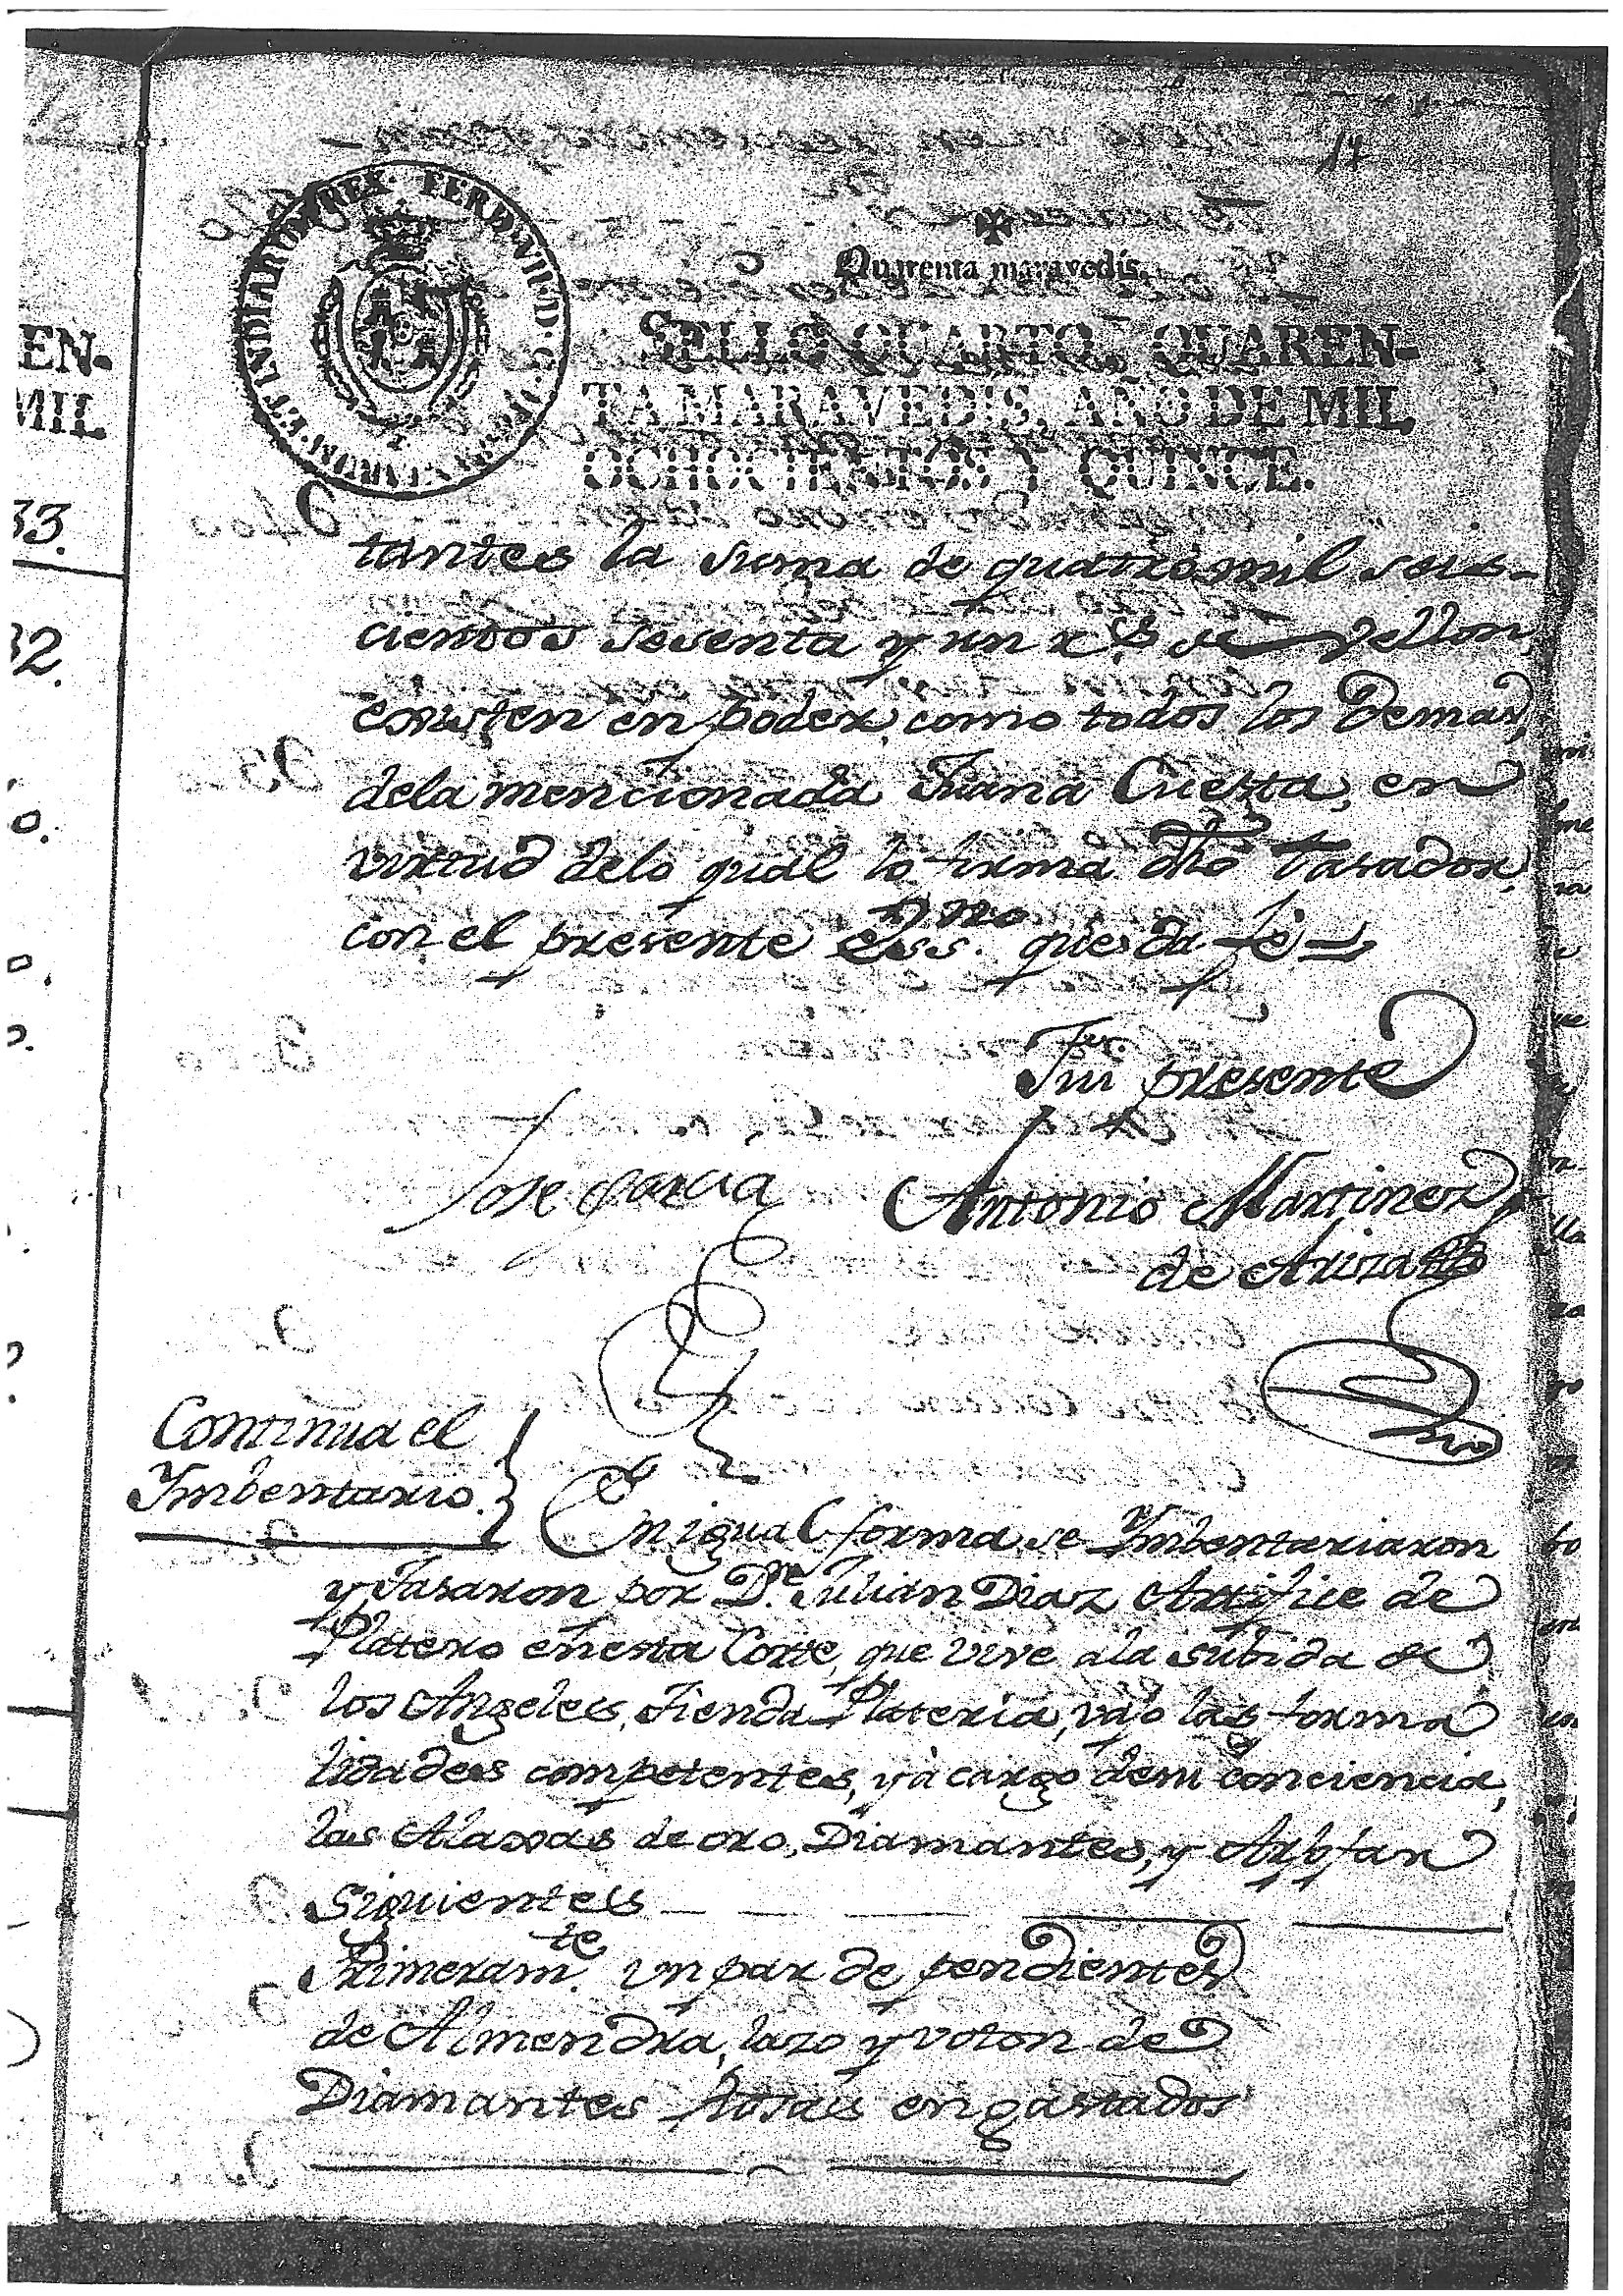 14
FERD·VII·D·G· HISPANIARUM·ET INDIARUM REX·
Quarenta maravedis.
SELLO QUARTO, QUAREN-
TA MARAVEDIS, AÑO DE MIL
OCHOCIENTOS Y QUINCE.
EN-
MIL
33.
32.
tantes la suma de quatro mil seis-
cientos sesenta y un r.s de vellon,
existen en poder, como todos los Demas,
dela mencionada Juana Cuesta, en
virtud delo qual lo firma dho tasador,
con el presente Ess.no que da fe
Fui presente
Jose Garcia
Antonio Martinez
de Ariza
Continua el
Ymbentario.
En igual forma se Ymbentariaron
y Tasaron por D.n Julian Diaz Artifice de
Platero en esta Corte, que vive ala subida de
los Angeles, Tienda Plateria, vajo las forma
lidades competentes, y à cargo de su conciencia,
las Alaxas de oro, Diamantes, y
Siguientes
Primeram.te un par de pendientes
de Almendra, lazo y voton de
Diamantes Rosas engastados